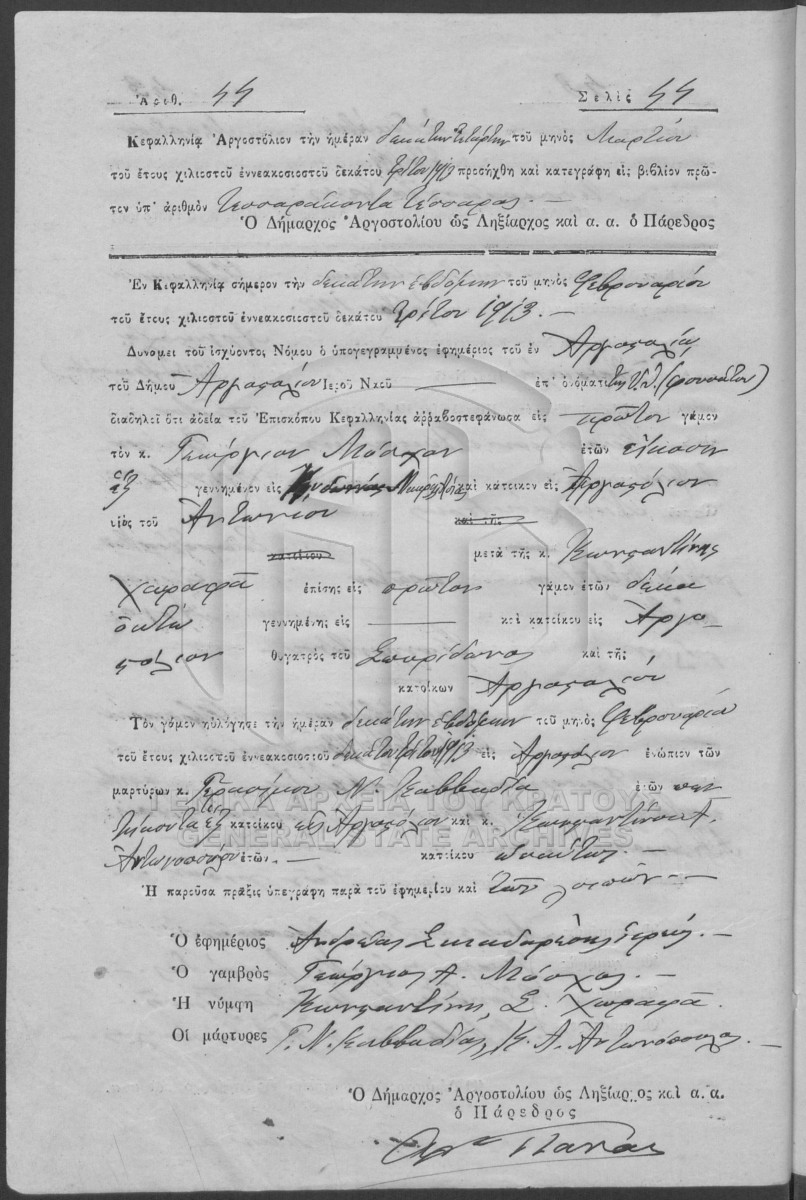 Ἀριθ. 44 Σελὶς 44
Κεφαλληνίᾳ Ἀργοστόλιον τὴν ἡμέραν δεκάτην τετάρτην τοῦ μηνὸς Μαρτίου
τοῦ ἔτους χιλιοστοῦ ἐννεακοσιοστοῦ δεκάτου τρίτου 1913 προσήχθη καὶ κατεγράφη εἰς βιβλίον πρῶ-
τον ὑπ' ἀριθμὸν Τεσσαράκοντα τέσσαρας. —
Ὁ Δήμαρχος Ἀργοστολίου ὡς Ληξίαρχος καὶ α. α. ὁ Πάρεδρος
Ἐν Κεφαλληνίᾳ σήμερον τὴν δεκάτην ἑβδόμην τοῦ μηνὸς Φεβρουαρίου
τοῦ ἔτους χιλιοστοῦ ἐννεακοσιοστοῦ δεκάτου τρίτου 1913. —
Δυνάμει τοῦ ἰσχύοντος Νόμου ὁ ὑπογεγραμμένος ἐφημέριος τοῦ ἐν Ἀργοστολίῳ
τοῦ Δήμου Ἀργοστολίου Ἱεροῦ Ναοῦ — ἐπ' ὀνόματι
διαδηλοῖ ὅτι ἀδείᾳ τοῦ Ἐπισκόπου Κεφαλληνίας ἀρραβοστεφάνωσα εἰς πρῶτον γάμον
τὸν κ. Γεώργιον Μόσχον ἐτῶν εἴκοσι
ἓξ γεννημένον εἰς καὶ κάτοικον εἰς Ἀργοστόλιον
υἱὸς τοῦ Ἀντωνίου καὶ τῆς
κατοίκου μετὰ τῆς κ. Κωνσταντίνης
Χωραφᾶ ἐπίσης εἰς πρῶτον γάμον ἐτῶν δέκα
ὀκτὼ γεννημένης εἰς — καὶ κατοίκου εἰς Ἀργο-
στόλιον θυγατρὸς τοῦ Σπυρίδωνος καὶ τῆς
κατοίκων Ἀργοστολίου
Τὸν γάμον ηὐλόγησε τὴν ἡμέραν δεκάτην ἑβδόμην τοῦ μηνὸς Φεβρουαρίου
τοῦ ἔτους χιλιοστοῦ ἐννεακοσιοστοῦ δεκάτου τρίτου 1913 εἰς Ἀργοστόλιον ἐνώπιον τῶν
μαρτύρων κ. Γερασίμου Ν. Καββαδία ἐτῶν πεν
τήκοντα ἓξ κατοίκου εἰς Ἀργοστόλιον καὶ κ. Κωνσταντίνου Α.
Ἀντωνοπούλου ἐτῶν — κατοίκου ὡσαύτως. —
Ἡ παροῦσα πρᾶξις ὑπεγράφη παρὰ τοῦ ἐφημερίου καὶ τῶν λοιπῶν. —
ΓΕΝΙΚΑ ΑΡΧΕΙΑ ΤΟΥ ΚΡΑΤΟΥΣ
GENERAL STATE ARCHIVES
Ὁ ἐφημέριος Ἀνδρέας ἱερεύς. —
Ὁ γαμβρὸς Γεώργιος Α. Μόσχος. —
Ἡ νύμφη Κωνσταντίνη Σ. Χωραφᾶ.
Οἱ μάρτυρες Γ. Ν. Καββαδίας, Κ. Α. Ἀντωνόπουλος. —
Ὁ Δήμαρχος Ἀργοστολίου ὡς Ληξίαρχος καὶ α. α.
ὁ Πάρεδρος
Πανᾶς